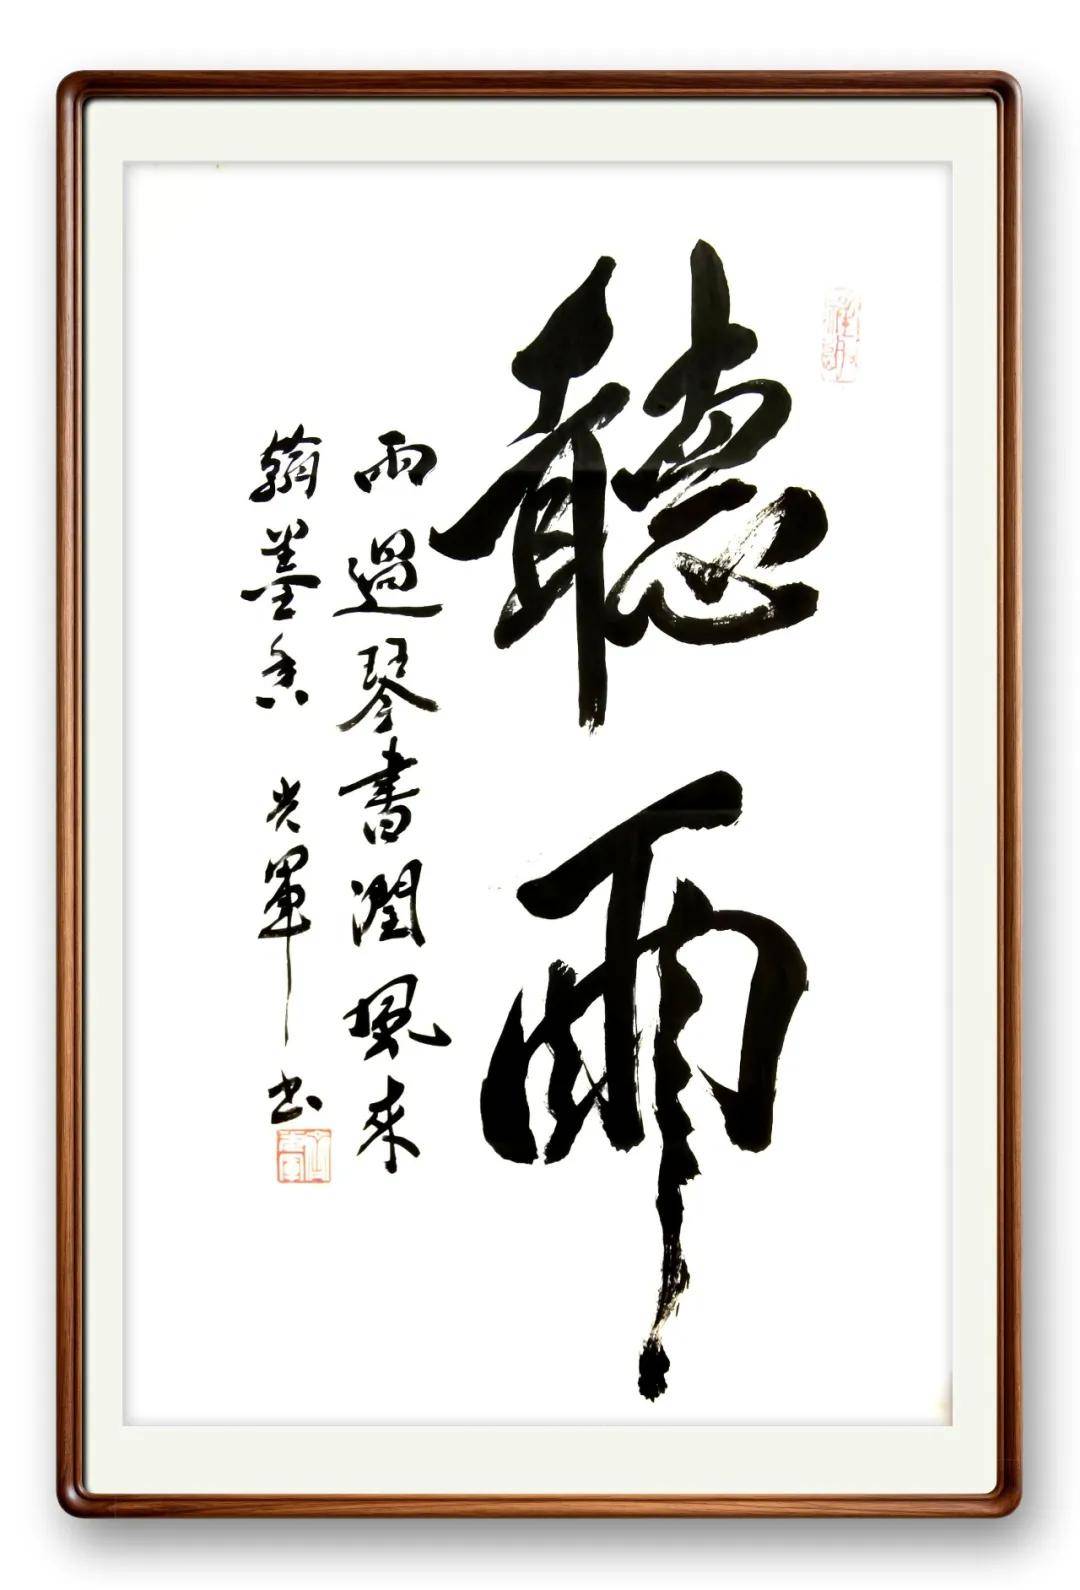 聽雨
雨過琴書潤風來
翰墨香 光軍书